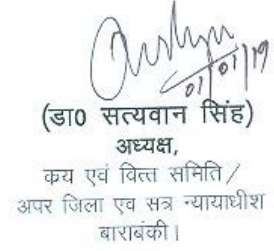 01/01/19
(डा0 सत्यवान सिंह)
अध्यक्ष,
कय एवं वित्त समिति /
अपर जिला एव सत्र न्यायाधीश
बाराबंकी।